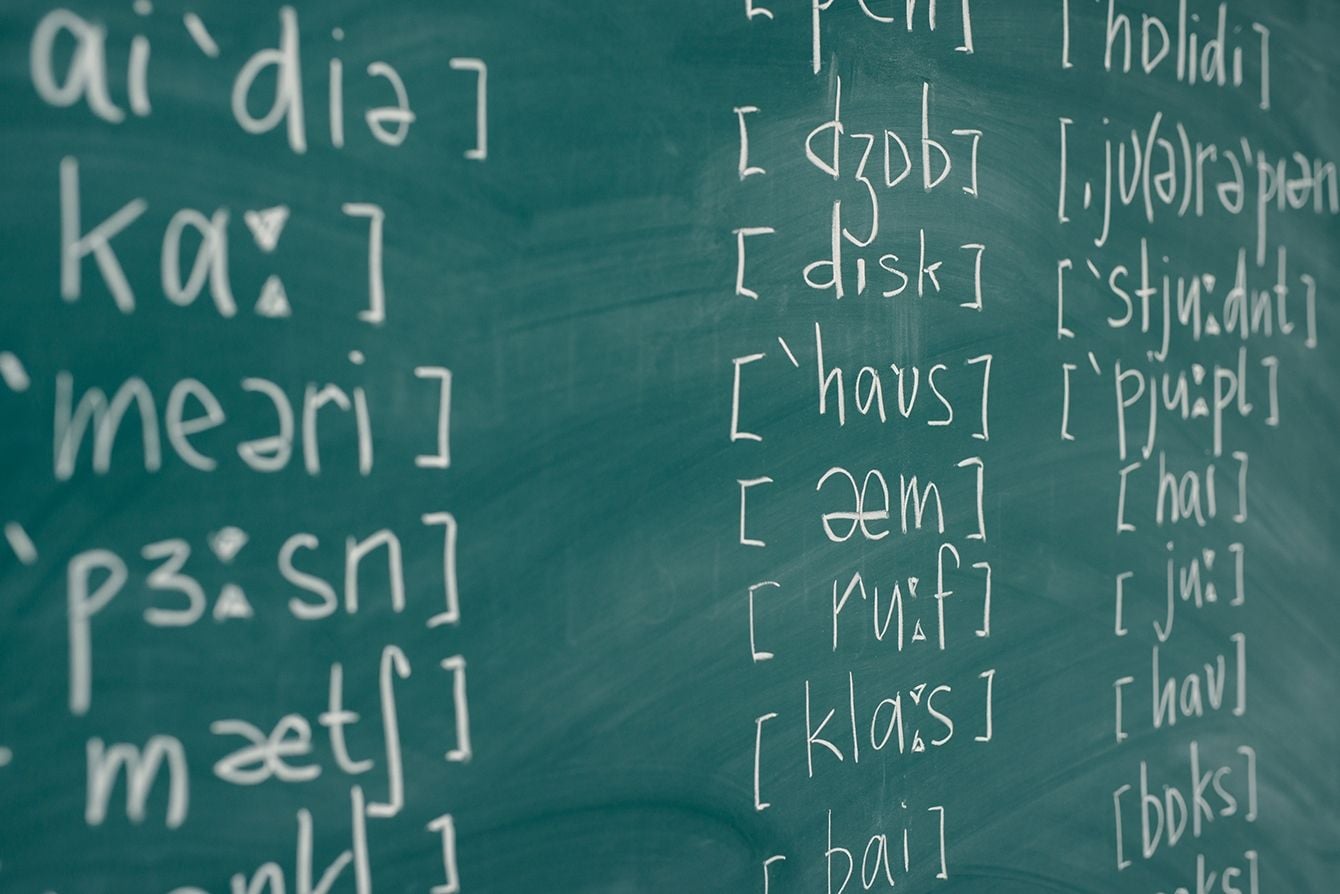 ai`diə]
kɑː]
`meəri]
`pɜːsn]
mætʃ]
[pen]
[dʒɒb]
[disk]
[`haʊs]
[æm]
[ruːf]
[klɑːs]
[bai]
[`hɒlidi]
[ˌjʊ(ə)rə`pɪən
[`stjuːdnt]
[`pjuːpl]
[hai]
[juː]
[haʊ]
[bɒks]